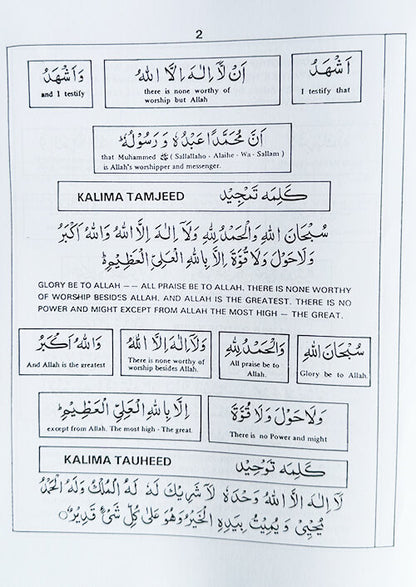 2
اَشْهَدُ
I testify that
اَنْ لَّآ اِلٰهَ اِلَّا اللّٰهُ
there is none worthy of
worship but Allah
وَاَشْهَدُ
and I testify
اَنَّ مُحَمَّدًا عَبْدُهٗ وَرَسُوْلُهٗ
that Muhammed ﷺ (Sallallaho - Alaihe - Wa - Sallam)
is Allah's worshipper and messenger.
KALIMA TAMJEED كَلِمَه تَمْجِيْد
سُبْحَانَ اللّٰهِ وَالْحَمْدُ لِلّٰهِ وَلَآ اِلٰهَ اِلَّا اللّٰهُ وَاللّٰهُ اَكْبَرُ
وَلَا حَوْلَ وَلَا قُوَّةَ اِلَّا بِاللّٰهِ الْعَلِيِّ الْعَظِيْمِ
GLORY BE TO ALLAH –– ALL PRAISE BE TO ALLAH. THERE IS NONE WORTHY
OF WORSHIP BESIDES ALLAH. AND ALLAH IS THE GREATEST. THERE IS NO
POWER AND MIGHT EXCEPT FROM ALLAH THE MOST HIGH – THE GREAT.
سُبْحَانَ اللّٰهِ
Glory be to Allah.
وَالْحَمْدُ لِلّٰهِ
All praise be to
Allah.
وَلَآ اِلٰهَ اِلَّا اللّٰهُ
There is none worthy of
worship besides Allah.
وَاللّٰهُ اَكْبَرُ
And Allah is the greatest
وَلَا حَوْلَ وَلَا قُوَّةَ
There is no Power and might
اِلَّا بِاللّٰهِ الْعَلِيِّ الْعَظِيْمِ
except from Allah. The most high - The great.
KALIMA TAUHEED كَلِمَه تَوْحِيْد
لَآ اِلٰهَ اِلَّا اللّٰهُ وَحْدَهٗ لَا شَرِيْكَ لَهٗ لَهُ الْمُلْكُ وَلَهُ الْحَمْدُ
يُحْيِىْ وَيُمِيْتُ بِيَدِهِ الْخَيْرُ وَهُوَ عَلٰى كُلِّ شَىْءٍ قَدِيْرٌ